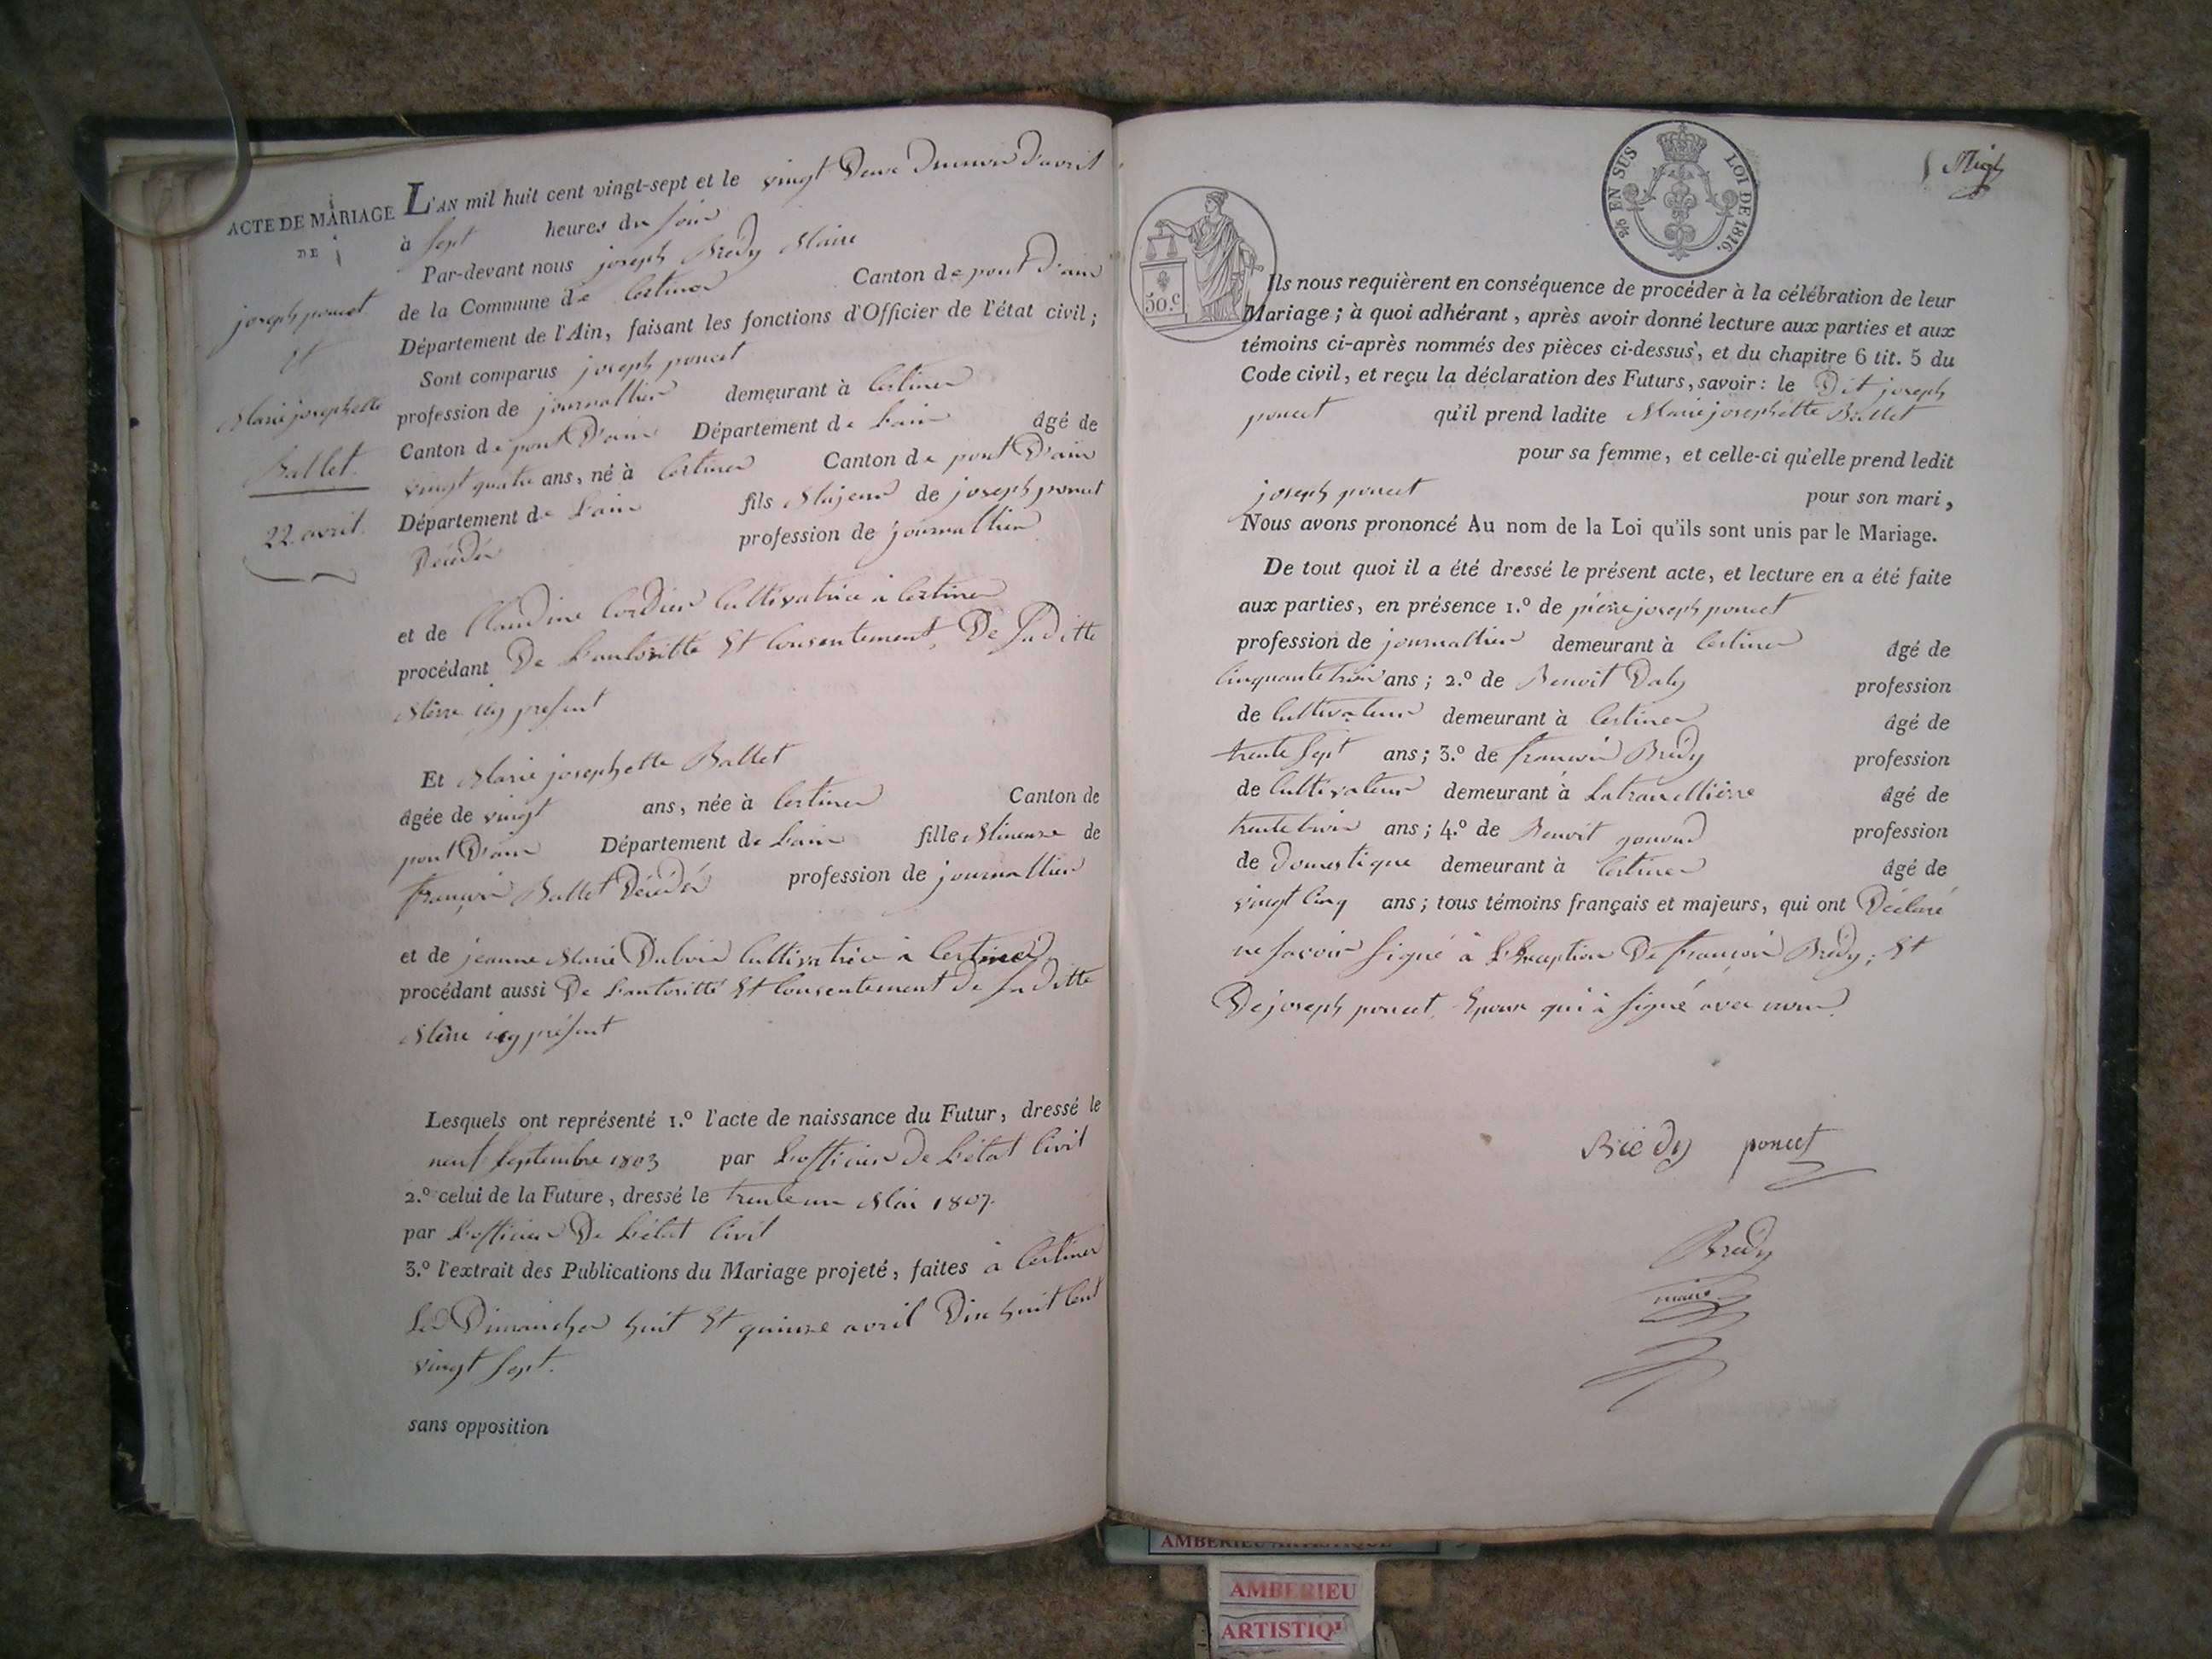 ACTE DE MARIAGE
DE
joseph poncet
Et
Marie josephette
Ballet.
22 avril.
L'AN mil huit cent vingt-sept et le vingt Deux Du mois D'avril
à sept heures du soir
Par-devant nous joseph Bredy Maire
de la Commune de Certines Canton de pont D'ain
Département de l'Ain, faisant les fonctions d'Officier de l'état civil;
Sont comparus joseph poncet
profession de journallier demeurant à Certines
Canton de pont D'ain Département de L'ain âgé de
vingt quatre ans, né à Certines Canton de pont D'ain
Département de L'ain fils Majeur de joseph poncet
Décédé profession de journallier
et de Claudine Cordier Cultivatrice à Certines
procédant De L'autoritté Et Consentement De Sa Ditte
Mère icy présent
Et Marie josephette Ballet
âgée de vingt ans, née à Certines Canton de
pont D'ain Département de L'ain fille Mineure de
françois Ballet Décédé profession de journallier
et de jeanne Marie Cultivatrice à Certines
procédant aussi De L'autoritté Et Consentement de Sa Ditte
Mère icy présent
Lesquels ont représenté 1.º l'acte de naissance du Futur, dressé le
neuf Septembre 1803 par L'officier De L'état Civil
2.º celui de la Future, dressé le trente un Mai 1807.
par L'officier De L'état Civil
3.º l'extrait des Publications du Mariage projeté, faites à Certines
Les Dimanches huit Et quinze avril Dix huit Cent
vingt Sept.
sans opposition
50.C
3/6 EN SUS LOI DE 1816.
Ils nous requièrent en conséquence de procéder à la célébration de leur
Mariage; à quoi adhérant, après avoir donné lecture aux parties et aux
témoins ci-après nommés des pièces ci-dessus, et du chapitre 6 tit. 5 du
Code civil, et reçu la déclaration des Futurs, savoir: le Dit joseph
poncet qu'il prend ladite Marie josephette Ballet
pour sa femme, et celle-ci qu'elle prend ledit
joseph poncet pour son mari,
Nous avons prononcé Au nom de la Loi qu'ils sont unis par le Mariage.
De tout quoi il a été dressé le présent acte, et lecture en a été faite
aux parties, en présence 1.º de pierre joseph poncet
profession de journallier demeurant à Certines âgé de
Cinquante trois ans; 2.º de Benoit Daly profession
de Cultivateur demeurant à Certines âgé de
trente Sept ans; 3.º de françois Brédy profession
de Cultivateur demeurant à Latranclière âgé de
trente trois ans; 4.º de Benoit profession
de Domestique demeurant à Certines âgé de
vingt Cinq ans; tous témoins français et majeurs, qui ont Déclaré
ne Savoir Signé à L'Exception De françois Brédy; Et
De joseph poncet Epoux qui à Signé avec nous.
poncet
Bredy
maire
AMBERIEU ARTISTIQUE
AMBERIEU
ARTISTIQU